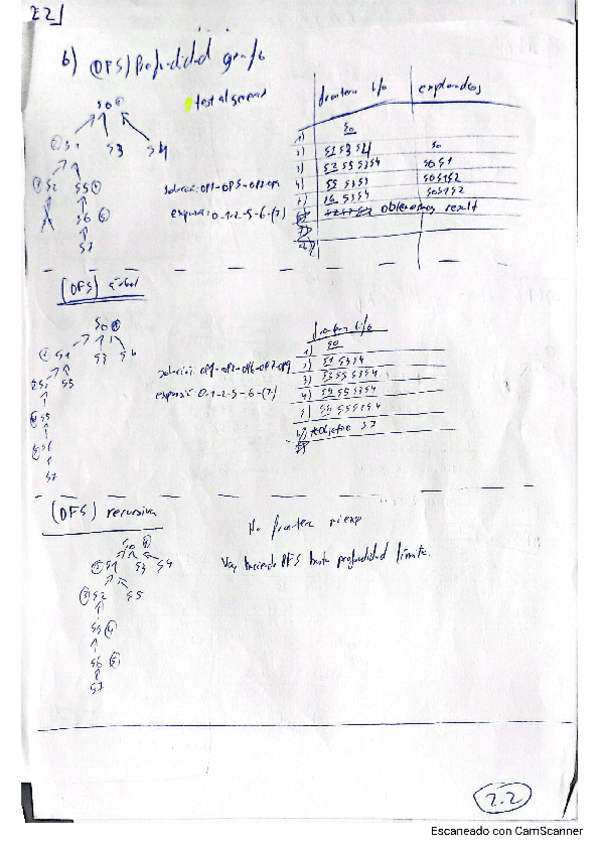 E2
b) (DFS) Profundidad grafo
test al generar
frontera L/o explorados
S0
1) S0
S1 S3 S4
2) S1 S3 S4 S0
3) S2 S5 S3 S4 S0 S1
S2 S5
4) S5 S3 S4 S0 S1 S2
5) S6 S3 S4 S0 S1 S2
obtenemos result
S6
S7
solución:
expansión: 0-1-2-5-6-(7)
(DFS) árbol
S0
frontera L/o
1) S0
S1 S3 S4
2) S1 S3 S4
S2 S5
3) S2 S5 S3 S4
expansión: 0-1-2-5-6-(7)
4) S5 S5 S3 S4
S5
5) S6 S5 S3 S4
S6
objetivo S7
S7
(DFS) recursiva
No frontera ni exp
S0
S1 S3 S4
Voy haciendo DFS hasta profundidad límite.
S2 S5
S5
S6
S7
2.2
Escaneado con CamScanner